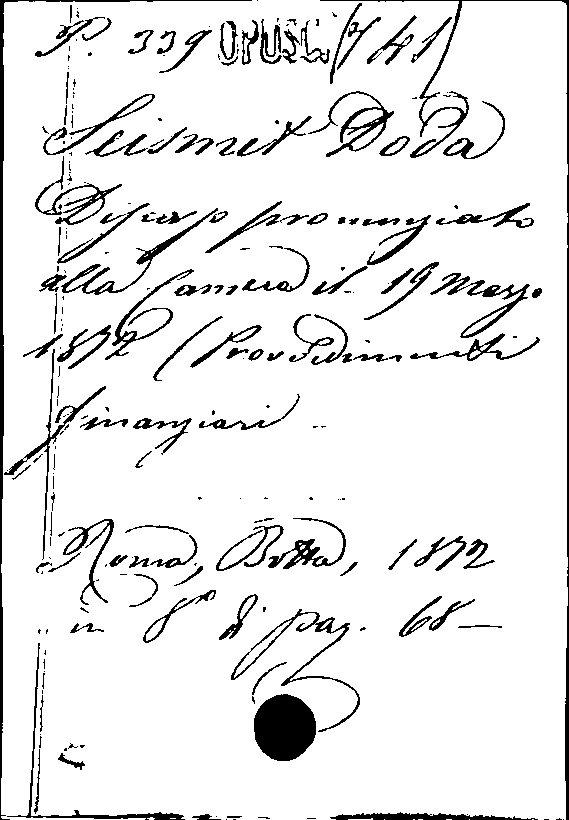 P. 339 OPUSC. (7/41)
Seismit Doda
Discorso pronunziato
alla Camera il 19 Marzo
1872 (Provvedimenti
finanziari
Roma, Botta, 1872
in 8º di pag. 68 —